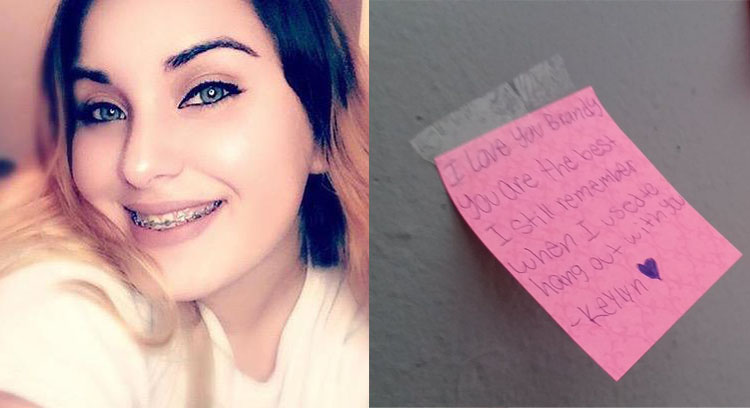 I Love You Brandy
You are the best
I still remember
when I used to
hang out with you
-Keylyn